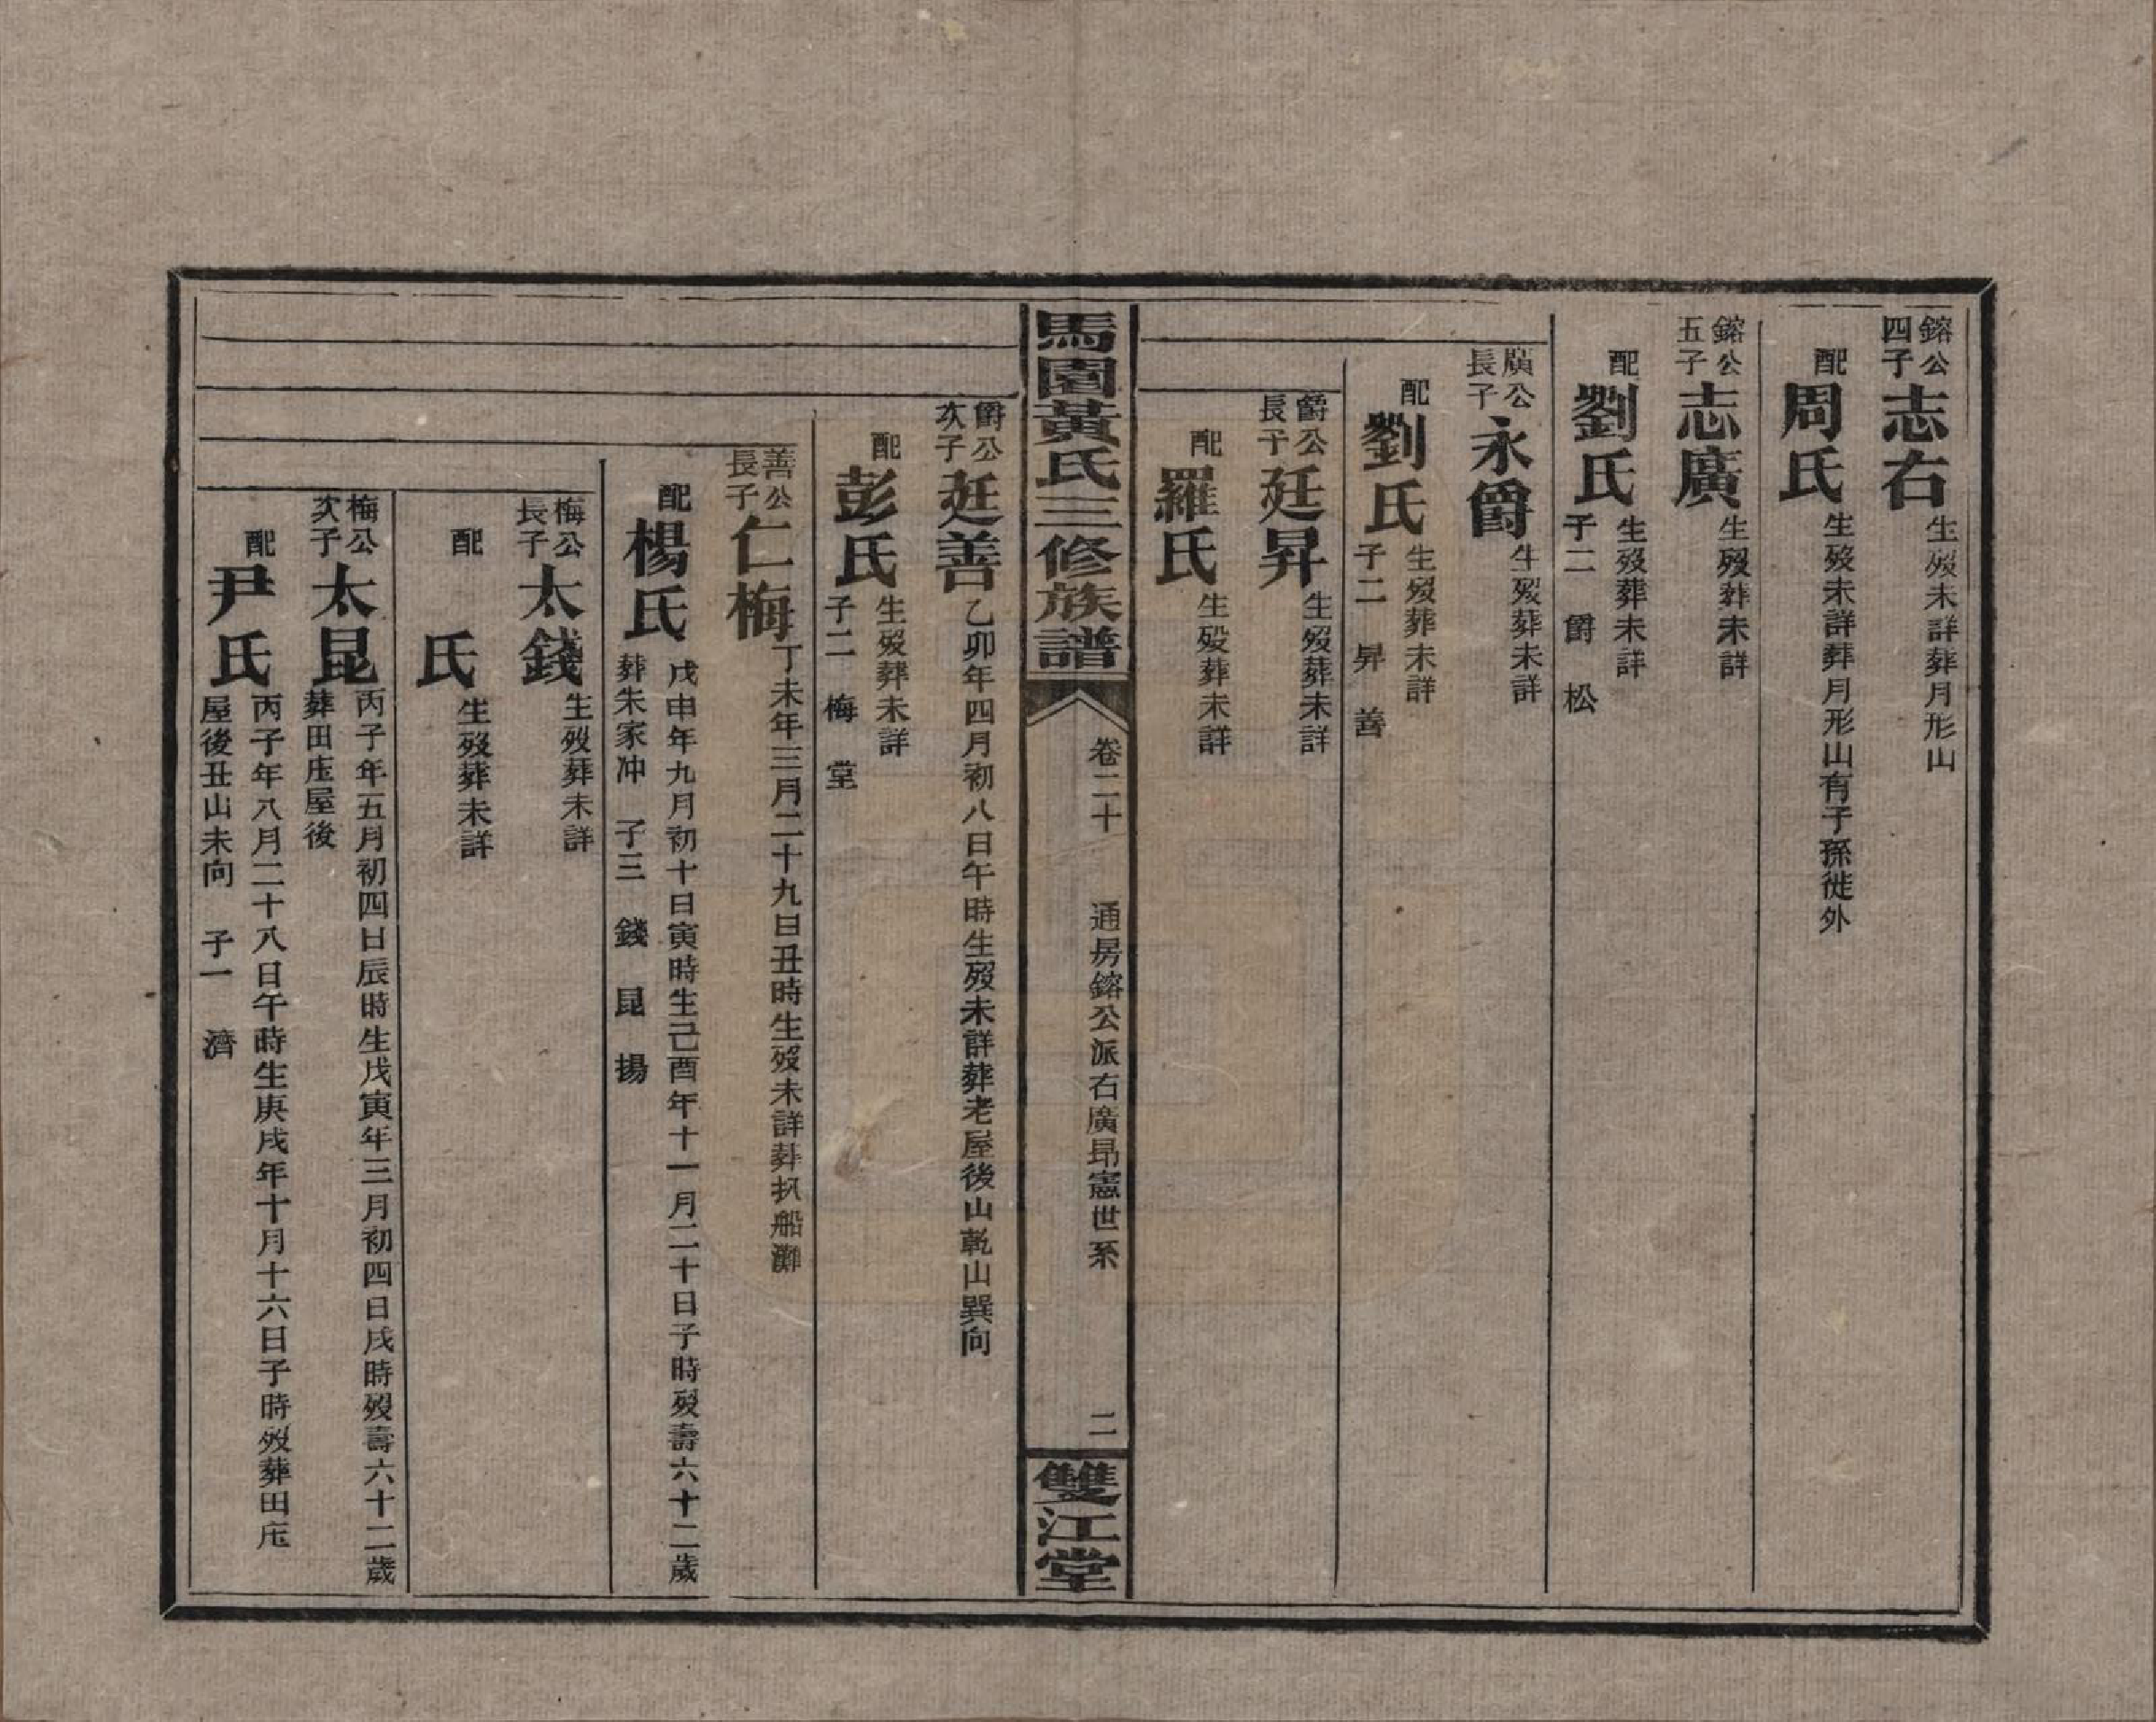 鎔公四子志右生歿未詳葬月形山
配周氏生歿未詳葬月形山有子孫徙外
鎔公五子志廣生歿葬未詳
配劉氏生歿葬未詳
子二 爵 松
廣公長子永爵生歿葬未詳
配劉氏生歿葬未詳
子二 昇 善
爵公長子廷昇生歿葬未詳
配羅氏生歿葬未詳
馬園黃氏三修族譜
卷二十 通房鎔公派右廣昂憲世系 二
雙江堂
爵公次子廷善乙卯年四月初八日午時生歿未詳葬老屋後山乾山巽向
配彭氏生歿葬未詳
子二 梅 堂
善公長子仁梅丁未年三月二十九日丑時生歿未詳葬扒船灘
配楊氏戊申年九月初十日寅時生己酉年十一月二十日子時歿壽六十二歲
葬朱家冲 子三 錢 昆 揚
梅公長子太錢生歿葬未詳
配 氏生歿葬未詳
梅公次子太昆丙子年五月初四日辰時生戊寅年三月初四日戌時歿壽六十二歲
葬田庄屋後
配尹氏丙子年八月二十八日午時生庚戌年十月十六日子時歿葬田庄
屋後丑山未向 子一 濟